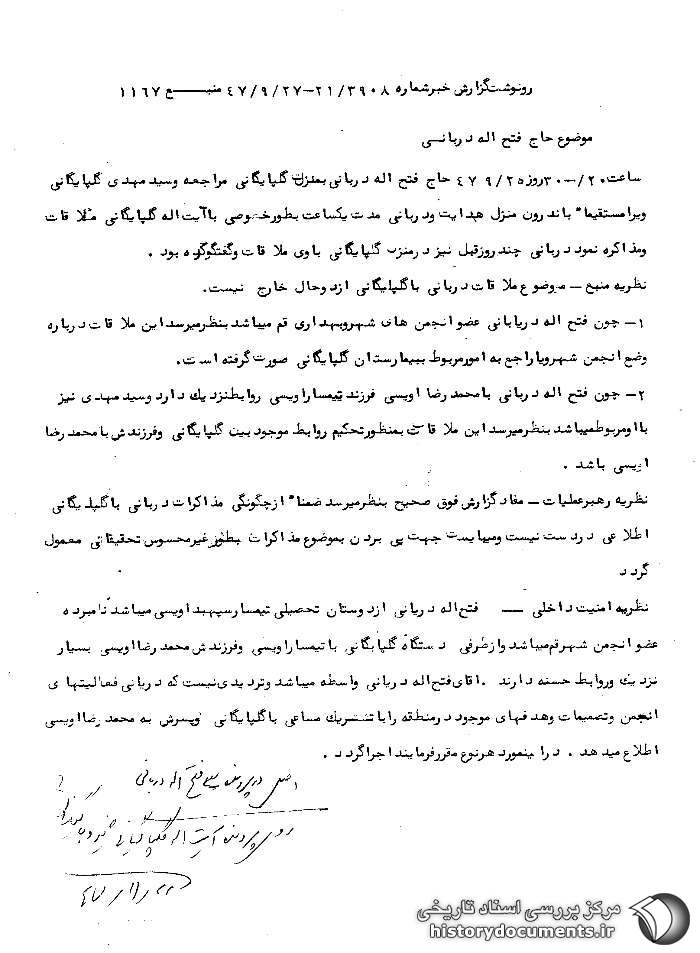 رونوشت گزارش خبر شماره ۲۱/۳۹۰۸-۴۷/۹/۲۷ منبـــــع ۱۱۶۷
موضوع حاج فتح اله دربانـــی
ساعت ۳۰-/۲۰ روزه ۴۷ ۹/۲ حاج فتح اله دربانی بمنزل گلپایگانی مراجعه وسید مهدی گلپایگانی
ویرا مستقیما" باندرون منزل هدایت ودربانی مدت یکساعت بطور خصوصی باآیت اله گلپایگانی ملاقات
ومذاکره نمود دربانی چند روز قبل نیز در منزل گلپایگانی باوی ملاقات وگفتگو کرده بود .
نظریه منبع – موضوع ملاقات دربانی باگلپایگانی ازدوحال خارج نیست.
۱– چون فتح اله دریابانی عضو انجمن های شهر وبهداری قم میباشد بنظر میرسد این ملاقات درباره
وضع انجمن شهرویا راجع به امور مربوط ببیمارستان گلپایگانی صورت گرفته است.
۲– چون فتح اله دربانی با محمد رضا اویسی فرزند تیمسار اویسی روابط نزدیك دارد وسید مهدی نیز
با اومربوط میباشد بنظر میرسد این ملاقات بمنظور تحکیم روابط موجود بین گلپایگانی وفرزندش با محمد رضا
اویسی باشد .
نظریه رهبر عملیات – مفاد گزارش فوق صحیح بنظر میرسد ضمنا" از چگونگی مذاکرات دربانی با گلپایگانی
اطلاعی در دست نیست ومیبایست جهت پی بردن بموضوع مذاکرات بطور غیر محسوس تحقیقاتی معمول
گردد
نظریه امنیت داخلی — فتح اله دربانی ازدوستان تحصیلی تیمسار سپهبد اویسی میباشد نامبرده
عضو انجمن شهرقم میباشد وازطرفی دستگاه گلپایگانی با تیمسار اویسی وفرزندش محمد رضا اویسی بسیار
نزدیك وروابط حسنه دارند .اقای فتح اله دربانی واسطه میباشد وتردیدی نیست که دربانی فعالیتهای
انجمن وتصمیمات وهدفهای موجود درمنطقه رابا تشریك مساعی با گلپایگانی وپسرش به محمد رضا اویسی
اطلاع میدهد . دراینمورد هرنوع مقرر فرمایند اجرا گردد .
اصل در پرونده فتح اله دربانی
پرونده آیت اله گلپایگانی
مرکز بررسی اسناد تاریخی
historydocuments.ir